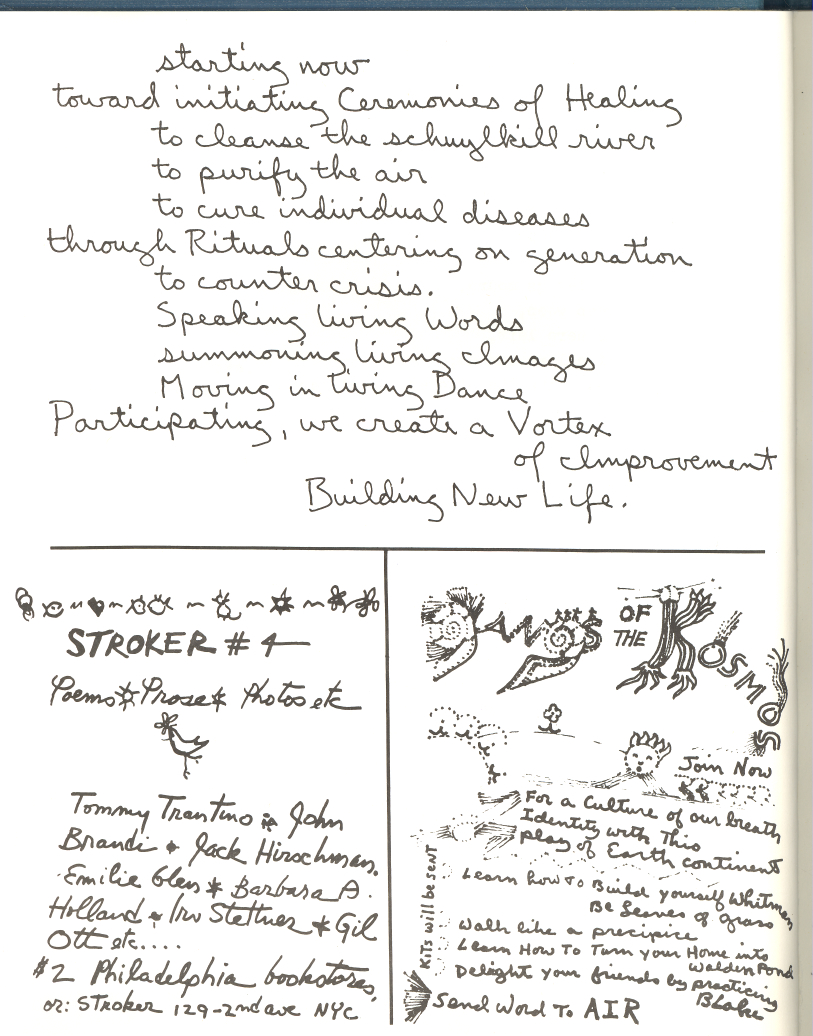 starting now
toward initiating Ceremonies of Healing
to cleanse the schuylkill river
to purify the air
to cure individual diseases
through Rituals centering on generation
to counter crisis.
Speaking living Words
summoning living Images
Moving in living Dance
Participating, we create a Vortex
of Improvement
Building New Life.
STROKER # 4
Poems * Prose * Photos etc
Tommy Trantino * John
Brandi * Jack Hirschman.
Emilie Glen * Barbara A.
Holland * Irv Stettner * Gil
Ott etc....
$2 Philadelphia bookstores,
or: STROKER 129-2nd ave NYC
OF
THE KOSMOS
Join Now
For a Culture of our breath
Identity with This
play of Earth continent
Learn how To Build yourself Whitman
Be Leaves of grass
Walk like a precipice
Learn How To Turn your Home into
Walden Pond
Delight your friends by practicing
Blake
Kits will be sent
Send Word To AIR